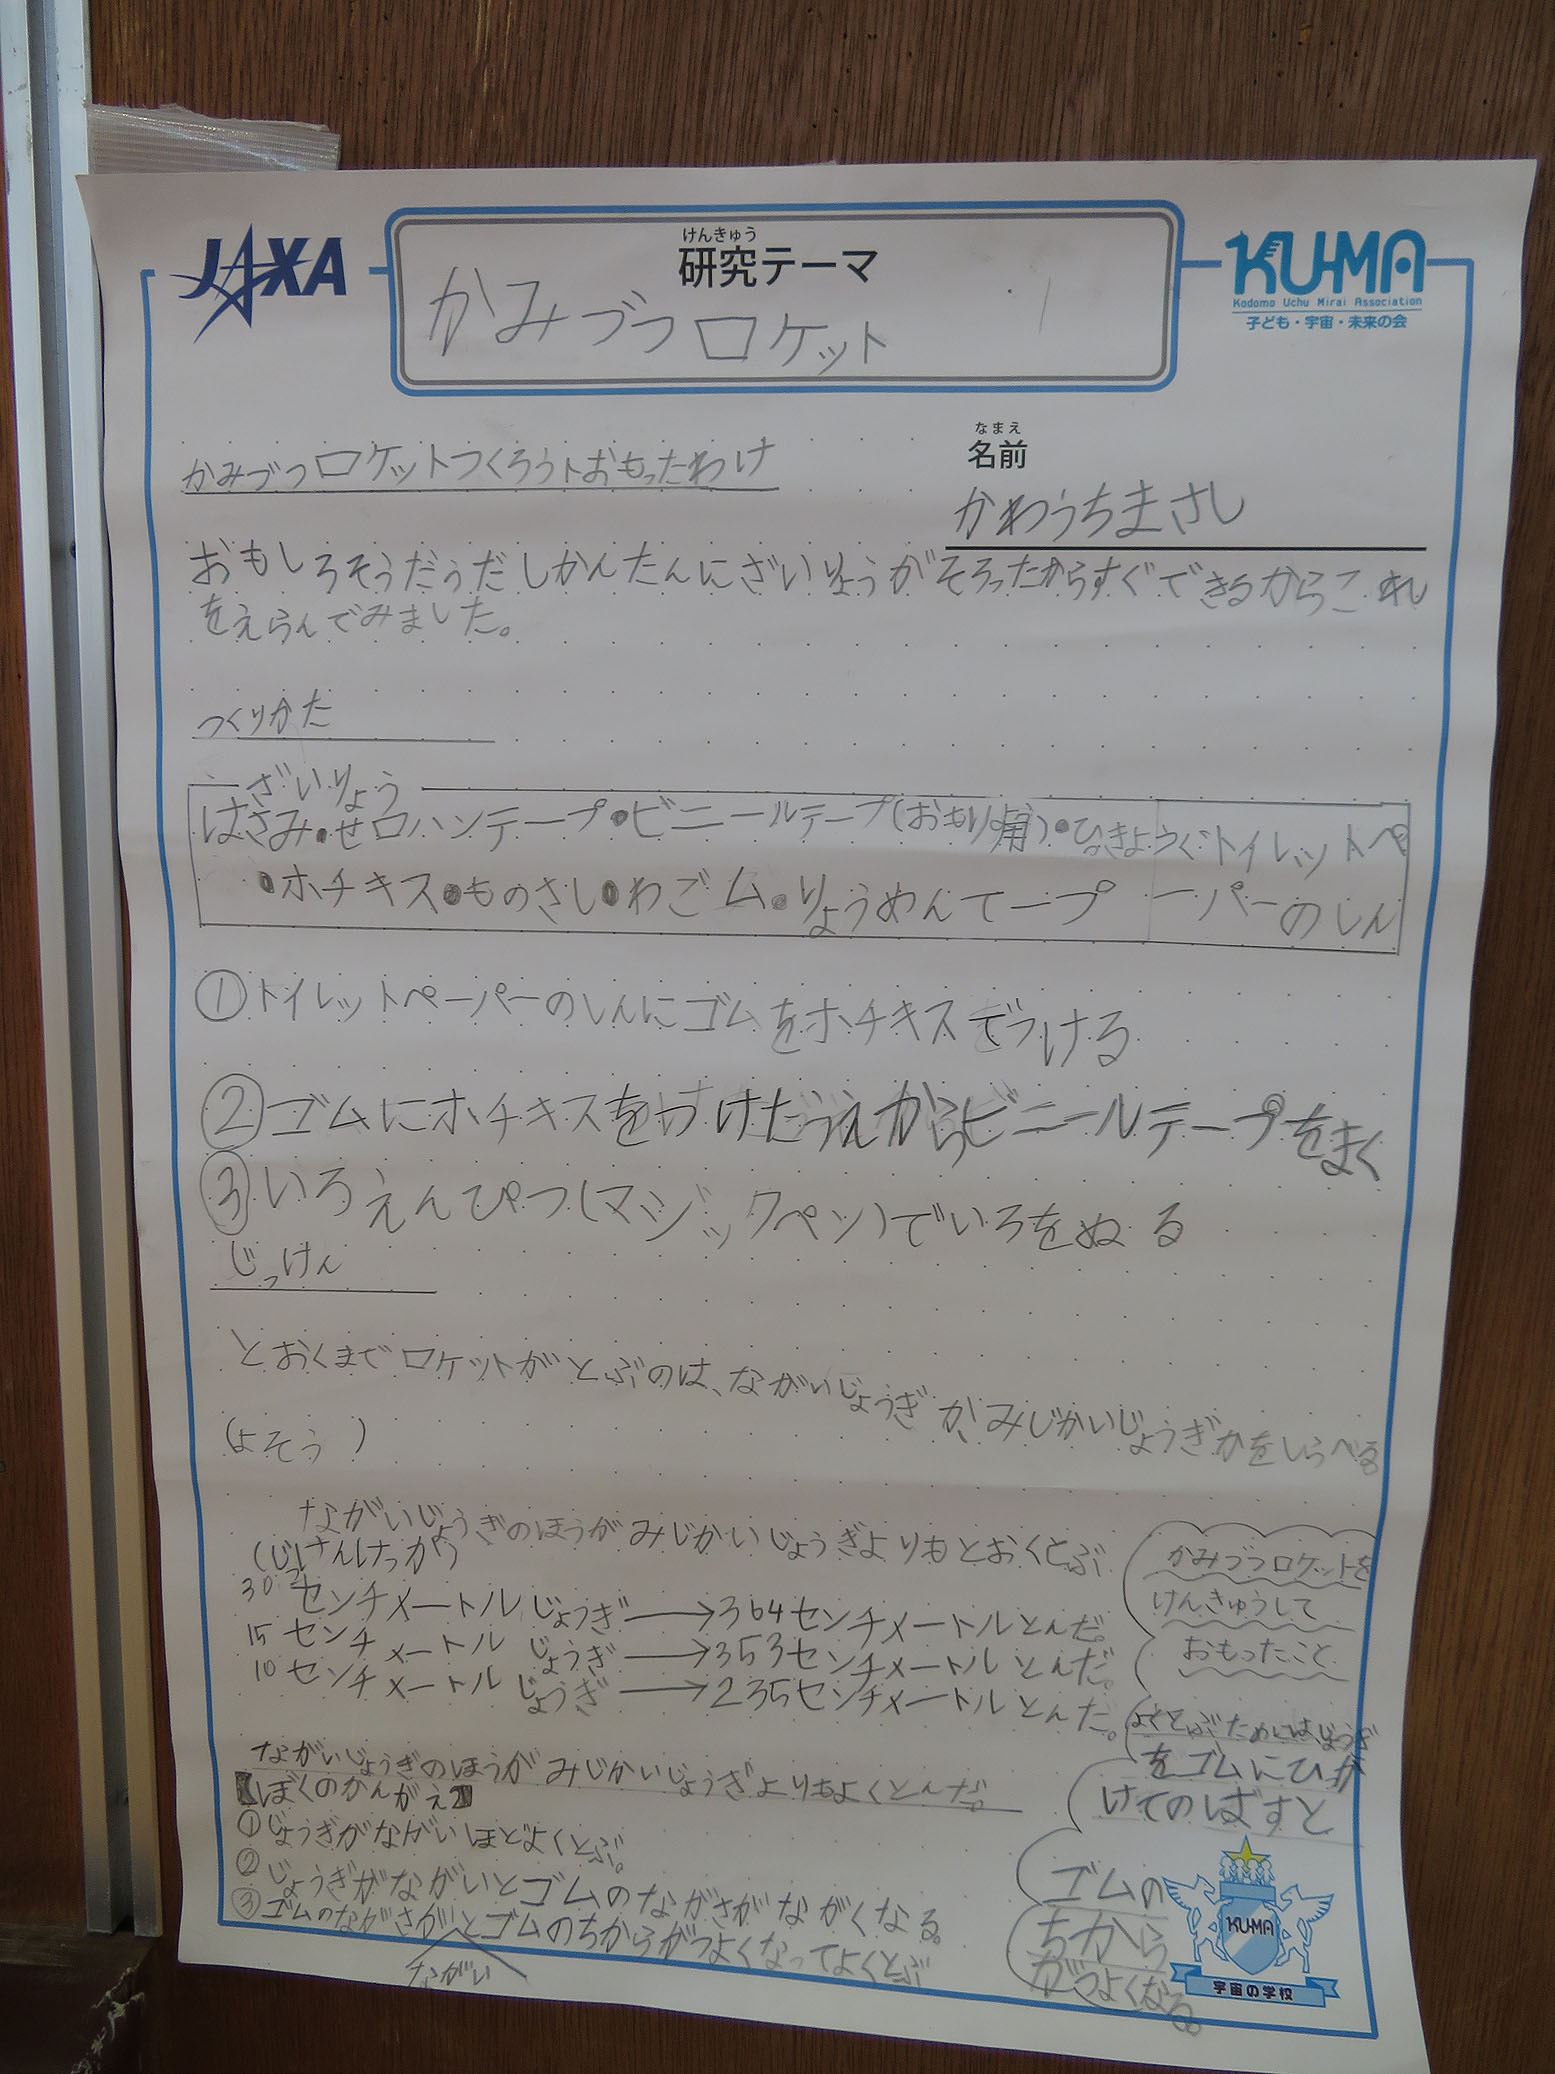 JAXA
けんきゅう
研究テーマ
かみづつロケット
KU-MA
Kodomo Uchu Mirai Association
子ども・宇宙・未来の会
なまえ
名前
かわうちまさし
かみづつロケットつくろうトおもったわけ
おもしろそうだうだしかんたんにざいりょうがそろったからすぐできるからこれ
をえらんでみました。
つくりかた
ざいりょう
はさみ・せロハンテープ・ビニールテープ(おもりよう)・ひっきようぐ・トイレットペ
・ホチキス・ものさし・わごム・りょうめんてープ ーパーのしん
①トイレットペーパーのしんにゴムをホチキスでつける
②ゴムにホチキスをつけたうえからビニールテープをまく
③いろえんぴつ(マジックペン)でいろをぬる
じっけん
とおくまでロケットがとぶのは、ながいじょうぎか、みじかいじょうぎかをしらべる。
(よそう)
ながいじょうぎのほうがみじかいじょうぎよりもとおくとぶ
(じっけんけっか)
30センチメートルじょうぎ→364センチメートルとんだ。
15センチメートルじょうぎ→353センチメートルとんだ。
10センチメートルじょうぎ→235センチメートルとんだ。
ながいじょうぎのほうがみじかいじょうぎよりもよくとんだ。
【ぼくのかんがえ】
①じょうぎがながいほどよくとぶ。
②じょうぎがながいとゴムのながさがながくなる。
③ゴムのながさがとゴムのちからがつよくなってよくとぶ
ながい
かみづつロケットを
けんきゅうして
おもったこと
よくとぶためにはじょうぎ
をゴムにひっか
けてのばすと
ゴムの
ちから
がつよくなる。
KU-MA
宇宙の学校